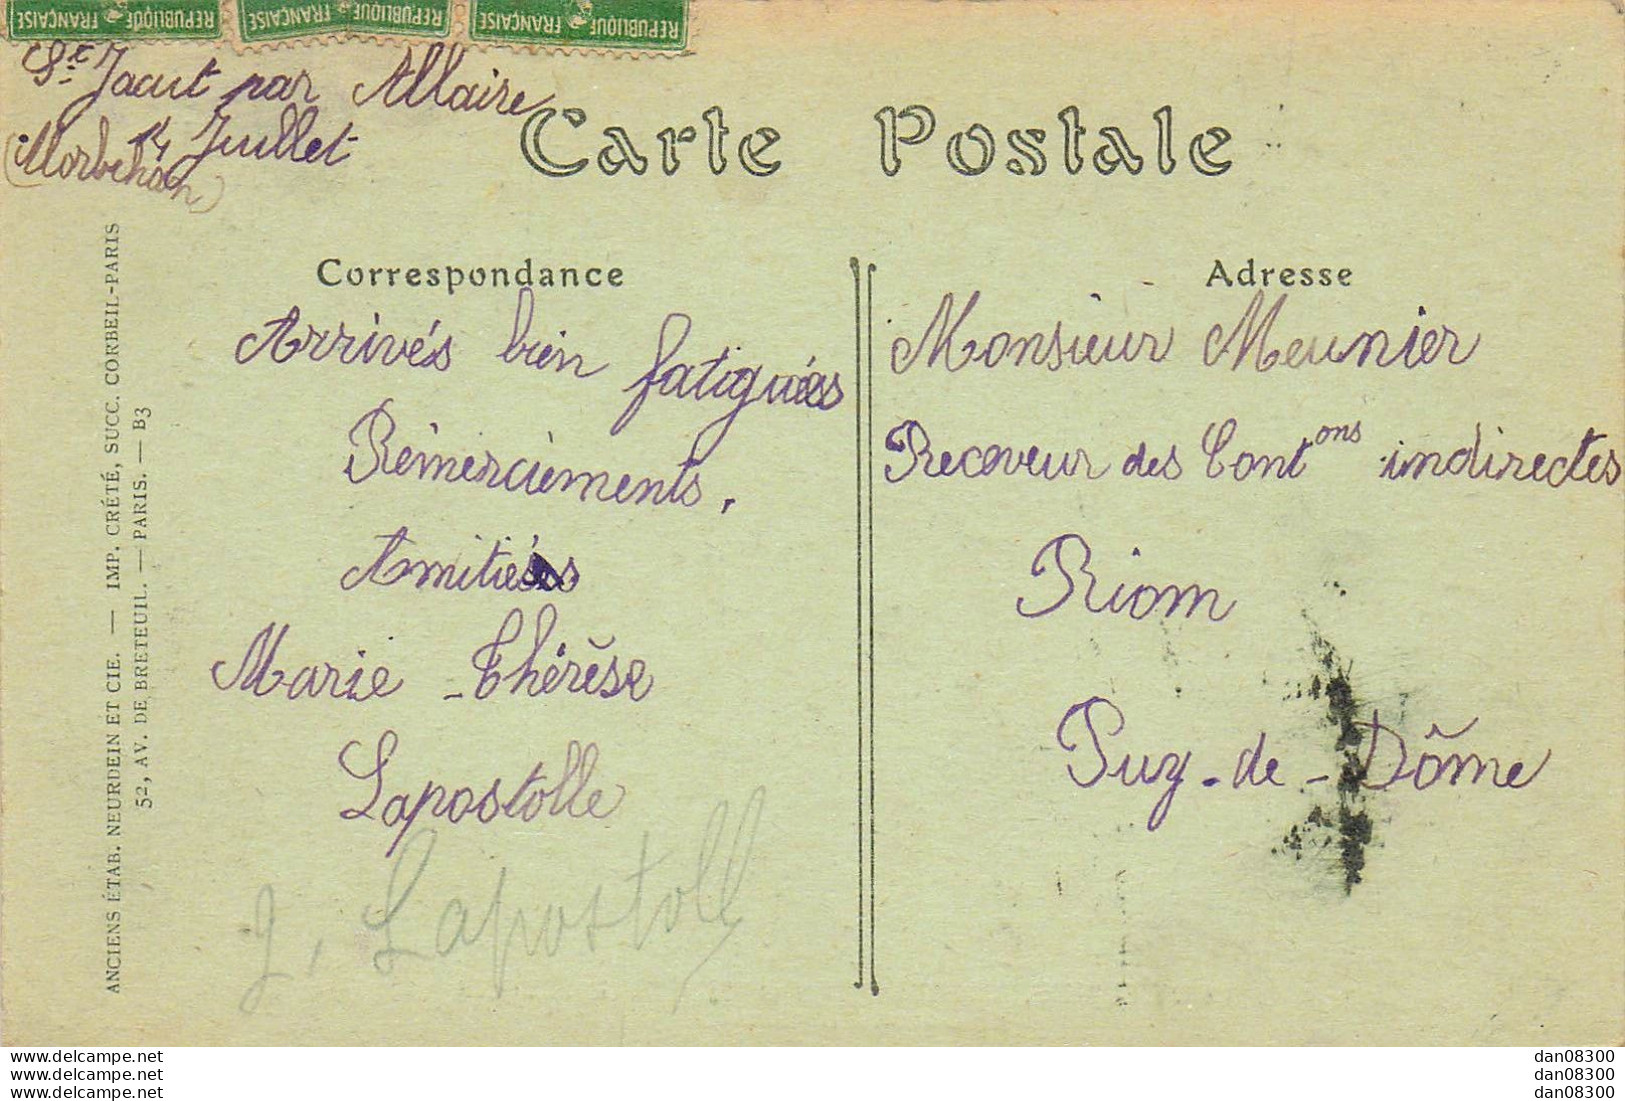 RÉPUBLIQUE FRANÇAISE RÉPUBLIQUE FRANÇAISE RÉPUBLIQUE FRANÇAISE
St Jacut par Allaire
14 Juillet
(Morbihan)
Carte Postale
Correspondance
Arrivés bien fatigués
Rémerciements.
Amitiés
Marie-Thérèse
Lapostolle
J. Lapostoll
Adresse
Monsieur Meunier
Receveur des Contons indirectes
Riom
Puy-de-Dôme
ANCIENS ÉTAB. NEURDEIN ET CIE. — IMP. CRÉTÉ, SUCC. CORBEIL-PARIS
52, AV. DE BRETEUIL. — PARIS. — B3
www.delcampe.net
www.delcampe.net
www.delcampe.net
dan08300
dan08300
dan08300